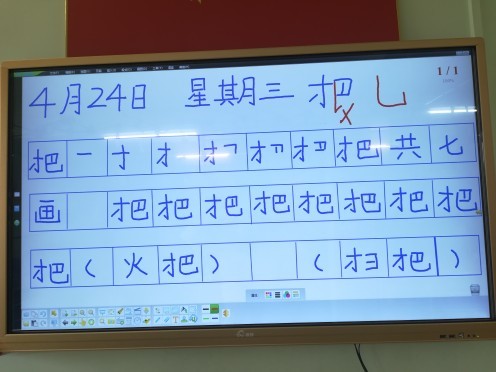 4月24日 星期三 把 乚 x 1/1
把 一 十 扌 扌㇕ 扌 扌 把 共 七
画 把 把 把 把 把 把 把 把
把 ( 火 把 ) ( 扫 把 )